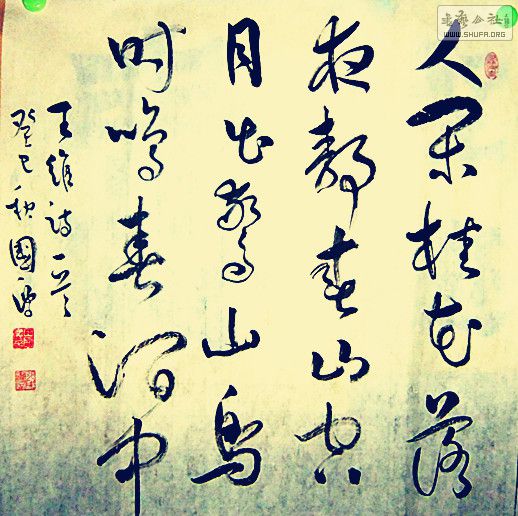 書藝公社
WWW.SHUFA.ORG
人闲桂花落
夜静春山空
月出惊山鸟
时鸣春涧中
王维诗一首
癸巳秋國